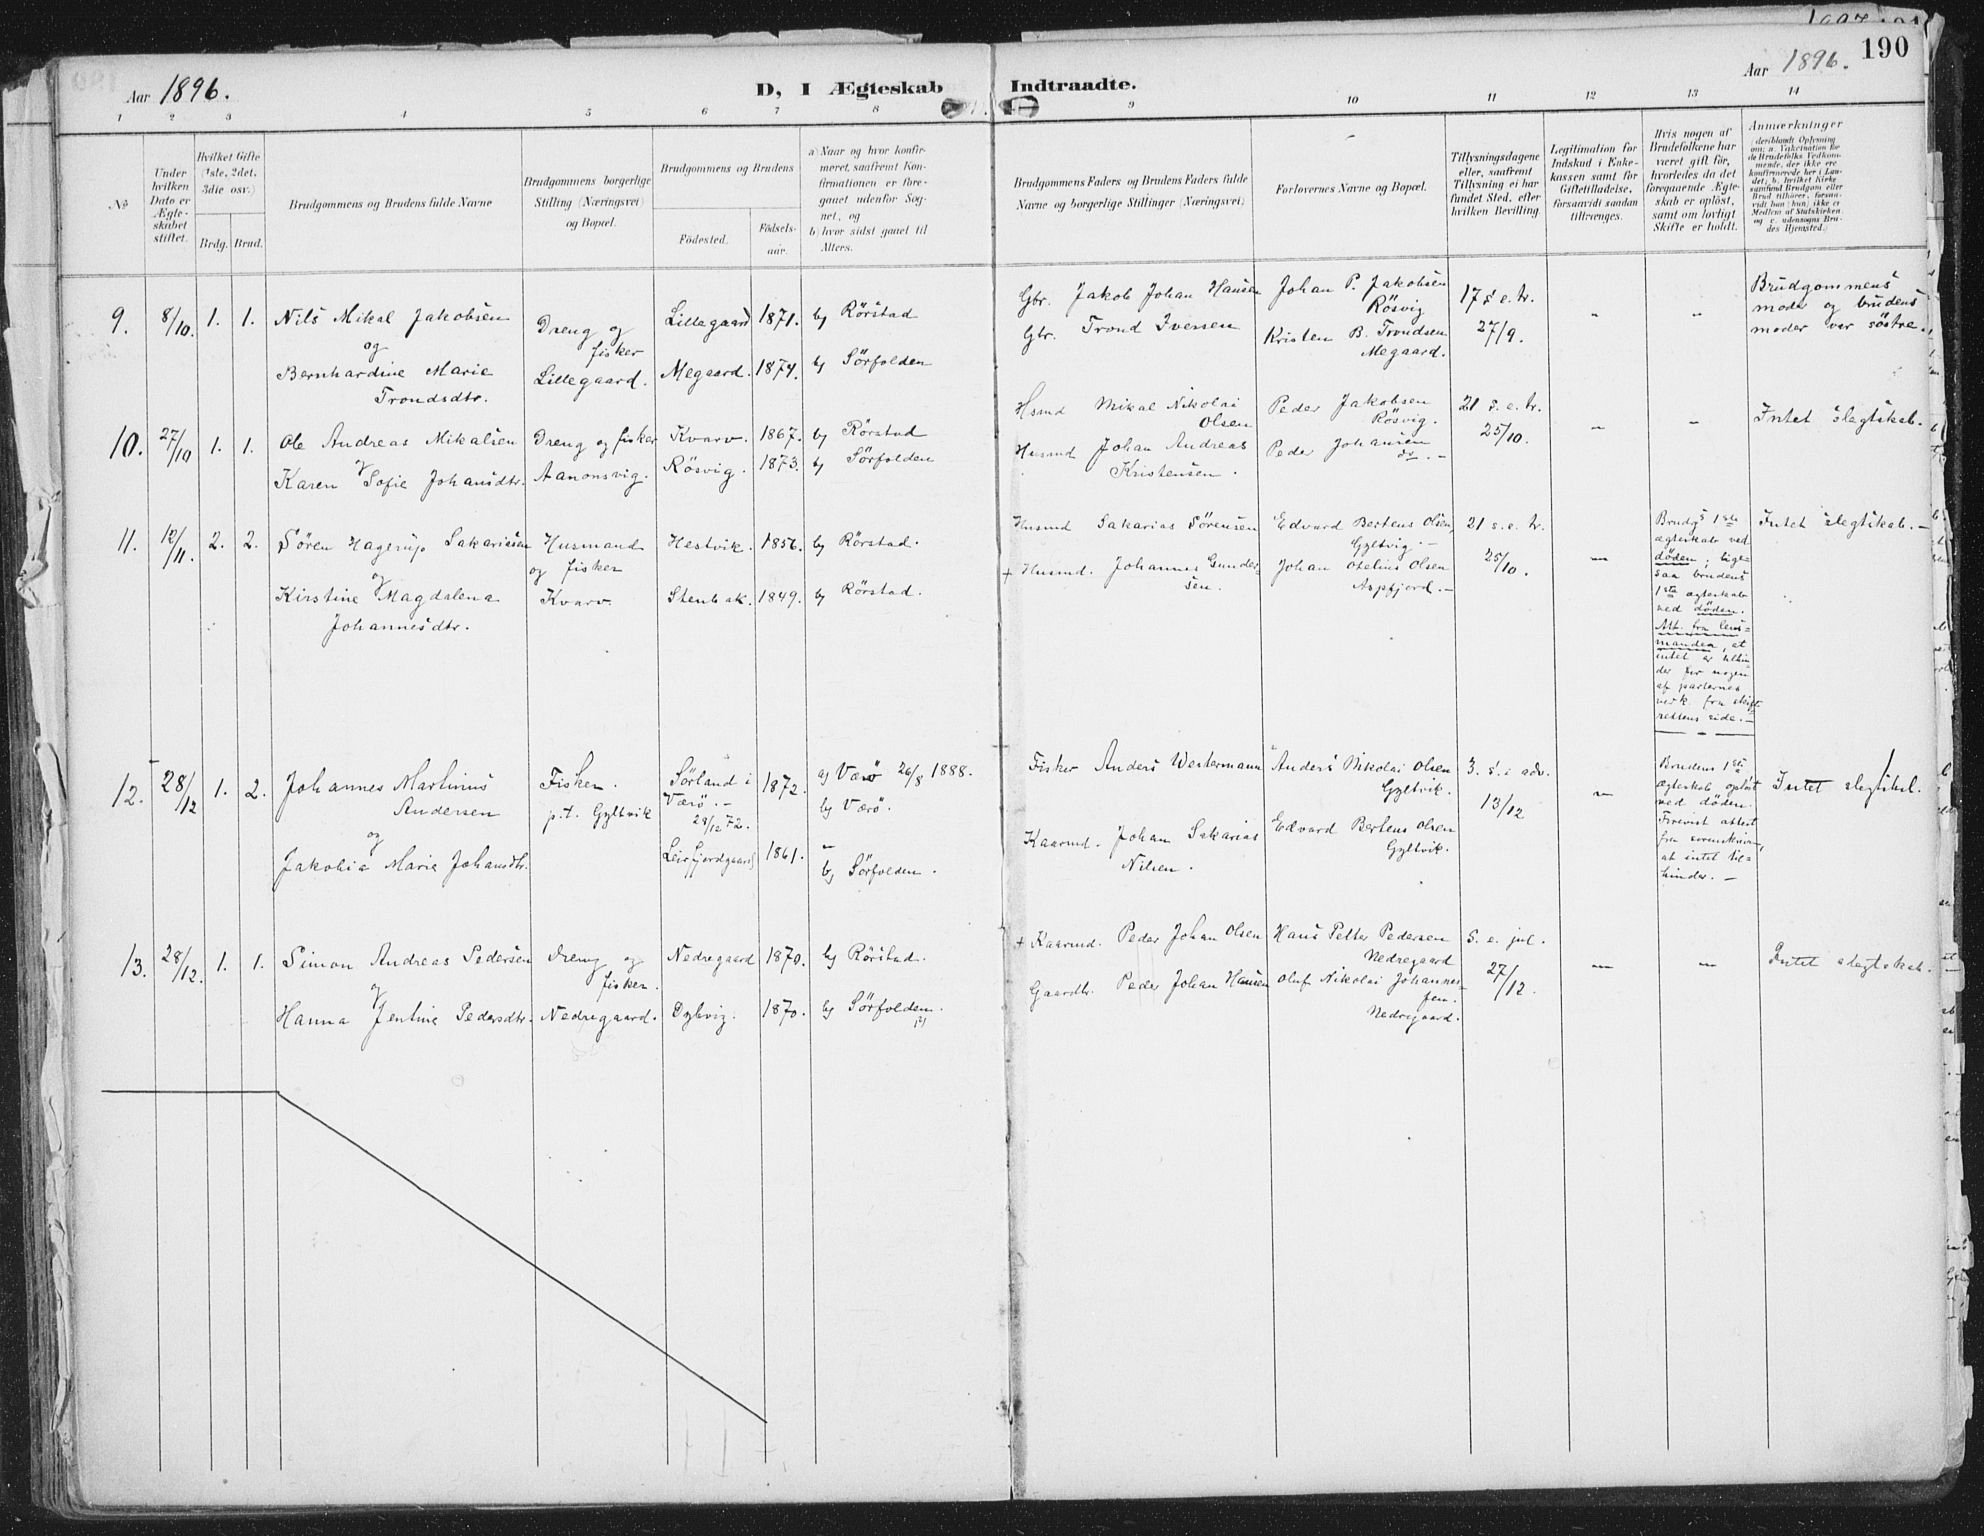 Aar 1896.
D, I Ægteskab Indtraadte.
Aar 1896.
190
1 2 3 4 5 6 7 8 9 10 11 12 13 14
No
Under hvilken Dato er Ægteskabet stiftet.
Hvilket Gifte (1ste, 2det, 3die osv.)
Brdg. Brud.
Brudgommens og Brudens fulde Navne
Brudgommens borgerlige Stilling (Næringsvei) og Bopæl.
Brudgommens og Brudens
Födested.
Födselsaar.
a) Naar og hvor konfirmeret, saafremt Konfirmationen er foregaaet udenfor Sognet, og
b) hvor sidst gaaet til Alters.
Brudgommens Faders og Brudens Faders fulde Navne og borgerlige Stillinger (Næringsvei)
Forlovernes Navne og Bopæl.
Tillysningsdagene eller, saafremt Tillysning ei har fundet Sted, efter hvilken Bevilling.
Legitimation for Indskud i Enkekassen samt for Giftetilladelse, forsaavidt saadan tiltrænges.
Hvis nogen af Brudefolkene har været gift för, hvorledes da det foregaaende Ægteskab er oplöst, samt om lovligt Skifte er holdt.
Anmærkninger (deriblandt Oplysning om: a. Vakcination for de Brudefolks Vedkommende, der ikke ere konfirmerede her i Landet; b. hvilket Kirkesamfund Brudgom eller Brud tilhører, forsaavidt han (hun) ikke er Medlem af Statskirken, og c. udensogns Brudes Hjemsted.)
9. 8/10. 1. 1. Nils Mikal Jakobsen
og
Bernhardine Marie
Trondsdtr.
Dreng og
fisker
Lillegaard.
Lillegaard 1871. b) Rörstad
Megaard. 1874. b) Sörfolden
Gbr. Jakob Johan Hansen
Gbr. Trond Iversen
Johan P. Jakobsen
Rösvig
Kristen B. Trondsen
Megaard.
17 s. e. tr.
27/9.
" "
Brudgommens
moder og brudens
moder var söstre.
10. 27/10 1. 1. Ole Andreas Mikalsen
og
Karen Sofie Johansdtr.
Dreng og fisker
Aanonsvig.
Kvarv. 1867. b) Rörstad
Rösvig. 1873. b) Sörfolden
Hsmd Mikal Nikolai
Olsen
Husmd Johan Andreas
Kristensen.
Peder Jakobsen
Rösvig.
Peder Johansen
do. -
21 s. e. tr.
25/10.
Intet slegtskab.
11. 12/11. 2. 2. Sören Hagerup Sakariasen
og
Kirstine Magdalena
Johannesdtr.
Husmand
og fisker
Kvarv.
Hestvik. 1856. b) Rörstad.
Stenbak. 1849. b) Rörstad.
Husmd Sakarias Sörensen
+ Husmd. Johannes Gundersen.
Edvard Bertens Olsen,
Gyltvig. -
Johan Otelius Olsen
Aspfjord. -
21 s. e. tr.
25/10.
Brudgs 1ste
ægteskab ved
döden; ligesaa
brudens
1ste ægteskab
ved döden.
Att. fra lensmanden,
at
intet er til hinder
for nogen
af parternes
vedk. fra skifterettens
side. -
Intet slegtskab. -
12. 28/12 1. 2. Johannes Martinus
Andersen
og
Jakobia Marie Johansdtr.
Fisker.
p.t. Gyltvik
Sörland i
Værö. -
28/12 72.
Leirfjordgaard
1872.
1861.
a) Værö 26/8 1888.
b) Værö.
b) Sörfolden.
Fisker Anders Westermann
Kaarmd. Johan Sakarias
Nilsen.
Anders Nikolai Olsen
Gyltvik.
Edvard Bertens Olsen
Gyltvik.
3. s. i adv.
13/12
Brudens 1ste
ægteskab oplöst
ved döden.
Forevist attest
fra
at intet til
hinder. -
Intet slegtskab.
13. 28/12. 1. 1. Simon Andreas Pedersen
og
Hanna Jentine Pedersdtr.
Dreng og
fisker.
Nedregaard.
Nedregaard 1870. b) Rörstad.
Dybvig. 1870. b) Sörfolden.
+ Kaarmd. Peder Johan Olsen
Gaardbr. Peder Johan Hansen
Hans Petter Pedersen
Nedregaard
Oluf Nikolai Johannessen.
Nedregaard.
S. e. jul.
27/12.
Intet slegtskab.